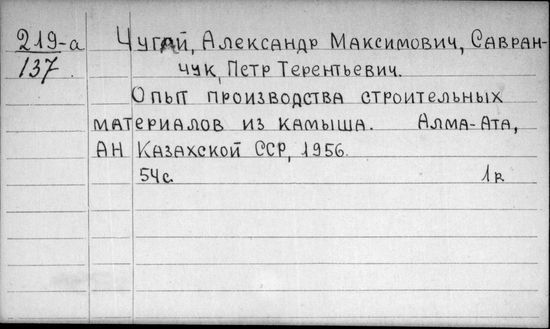 219-а Чугай, Александр Максимович, Савран-
137 чук, Петр Терентьевич.
Опыт производства строительных
материалов из камыша. Алма-Ата,
АН Казахской ССР, 1956.
54с. 1к